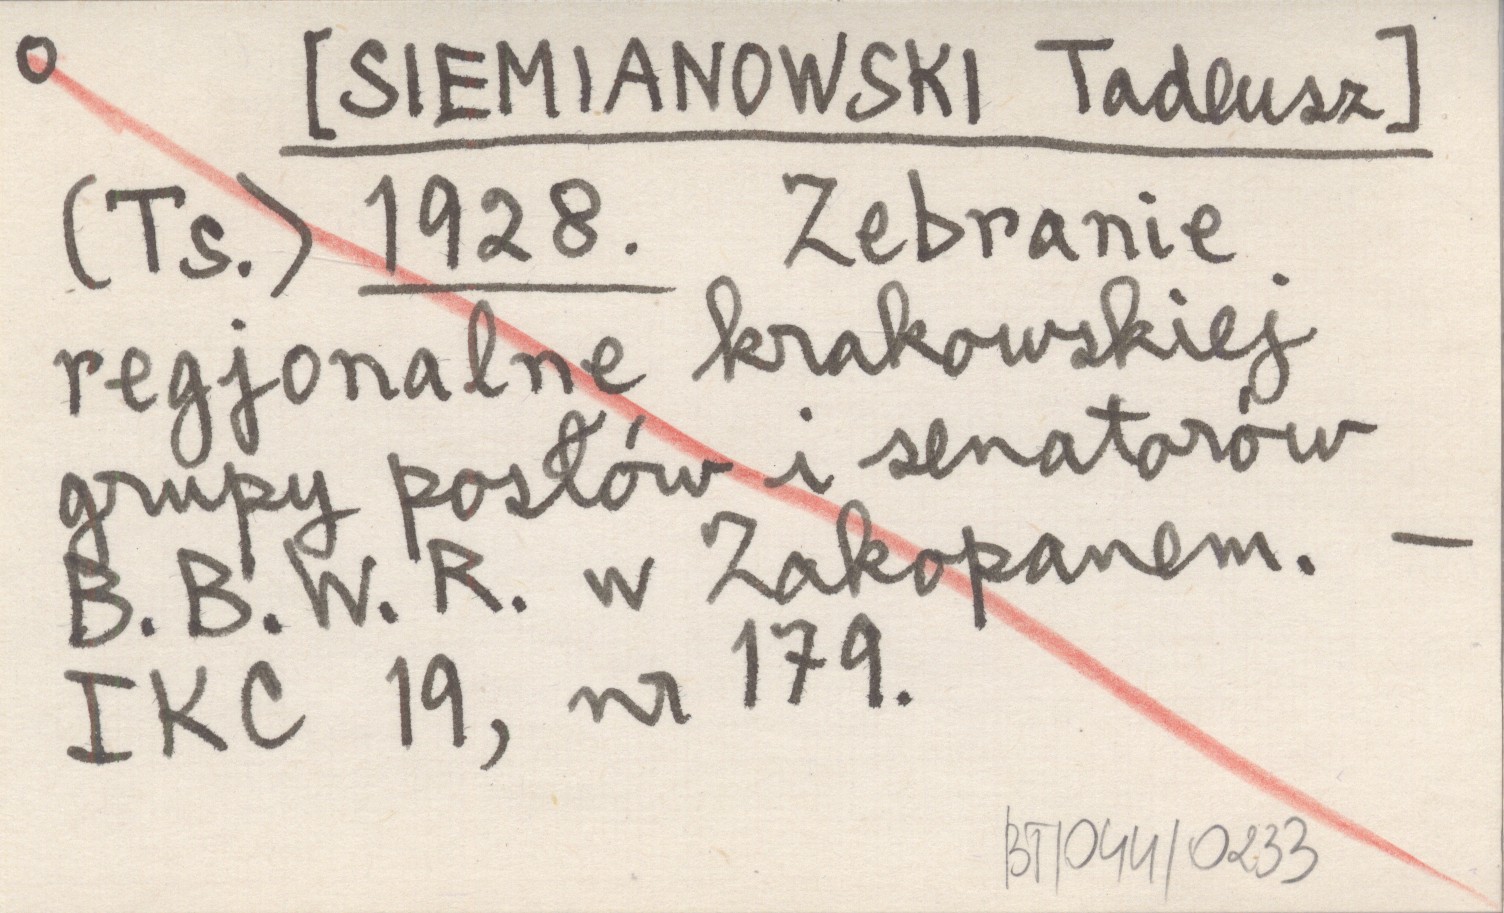 [SIEMIANOWSKI Tadeusz]
(Ts.) 1928. Zebranie
regjonalne krakowskiej
grupy posłów i senatorów
B.B.W.R. w Zakopanem. —
IKC 19, nr 179.
BT/044/0233